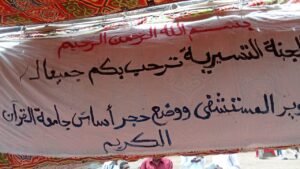 بسم الله الرحمن الرحيم
لجنة التسيرية ترحب بكم جميعا
المستشفى ووضع حجر أساس جامعة القرآن
الكريم